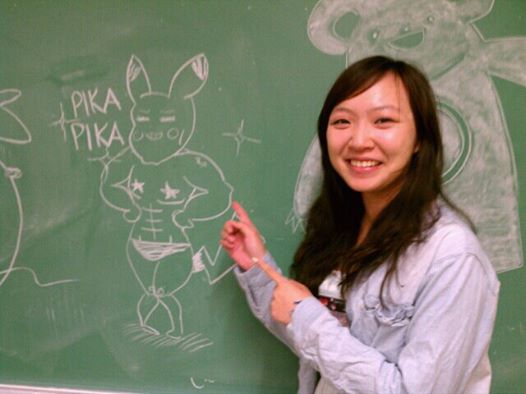 PIKA
PIKA